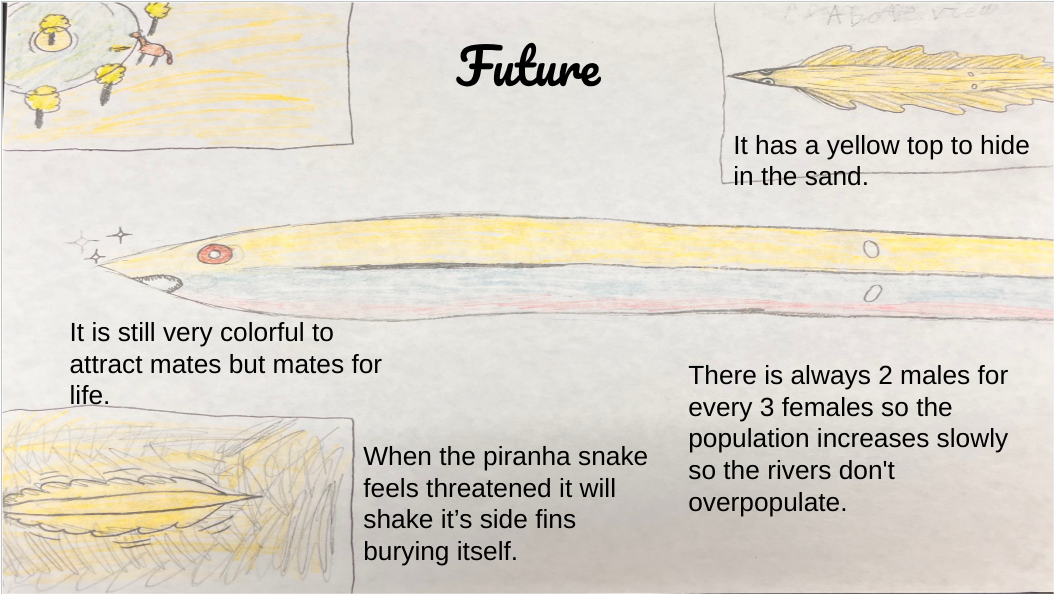 Future
Above view
It has a yellow top to hide
in the sand.
It is still very colorful to
attract mates but mates for
life.
When the piranha snake
feels threatened it will
shake it’s side fins
burying itself.
There is always 2 males for
every 3 females so the
population increases slowly
so the rivers don't
overpopulate.